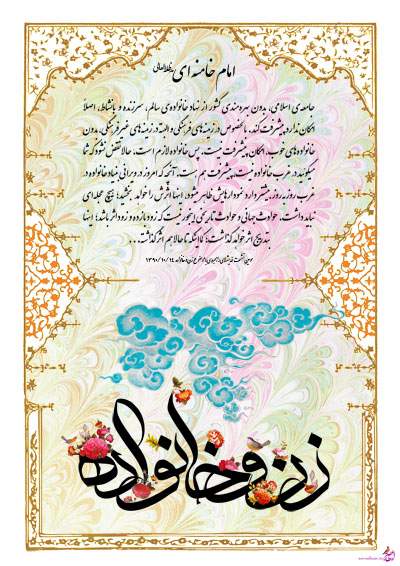 امام خامنه ای مدظله‌العالی
جامعه‌ی اسلامی، بدون بهره‌مندی کشور از نهاد خانواده‌ی سالم، سرزنده و بانشاط، اصلاً
امکان ندارد پیشرفت کند. بالخصوص در زمینه‌های فرهنگی و البته در زمینه‌های غیرفرهنگی، بدون
خانواده‌های خوب، امکان پیشرفت نیست. پس خانواده لازم است. حالا نقض نشود که شما
میگوئید در غرب خانواده نیست، پیشرفت هم هست. آنچه که امروز در ویرانی نهاد خانواده در
غرب روزبه‌روز بیشتر دارد نمودارهایش ظاهر میشود، اینها اثرش را خواهد بخشید؛ هیچ عجله‌ای
نباید داشت. حوادث جهانی و حوادث تاریخی اینجور نیست که زود بازده و زود اثر باشد؛ اینها
بتدریج اثر خواهد گذاشت؛ کما اینکه تا حالا هم اثر گذاشته...
۱۳۹۰/۱۰/۱۴
زن و خانواده